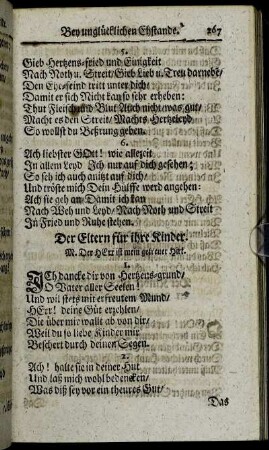 Bey unglücklichen Ehstande. 267
5.
Gieb Hertzens-fried und Einigkeit
Nach Noth u. Streit/ Gieb Lieb u. Treu darnebē/
Den Ehefeind tritt unter dich
Damit er sich Nicht kan so sehr erheben:
Thut Fleisch und Blut Auch nicht was gut/
Macht es den Streit/ Machts Hertzeleyd
So wollst du Beßrung geben.
6.
Ach liebster GOtt! wie allezeit
In allem Leyd Ich nur auf dich gesehen;
So seh ich auch anitzt auf dich/
Und tröste mich Dein Hülffe werd angehen:
Ach sie geh an Damit ich kan
Nach Weh und Leyd/ Nach Noth und Streit
In Fried und Ruhe stehen.
Der Eltern für ihre Kinder.
M. Der HErr ist mein getreuer Hirt.
1.
ICh dancke dir von Hertzens-grund/
O Vater aller Seelen!
Und wil stets mit erfreutem Mund/
HErr! deine Güt erzehlen/
Die über mir wallt ab von dir/
Weil du so liebe Kinder mir
Beschert durch deinen Segen.
2.
Ach! halte sie in deiner Hut
Und laß mich wohl bedencken/
Was diß sey vor ein theures Gut/
Das